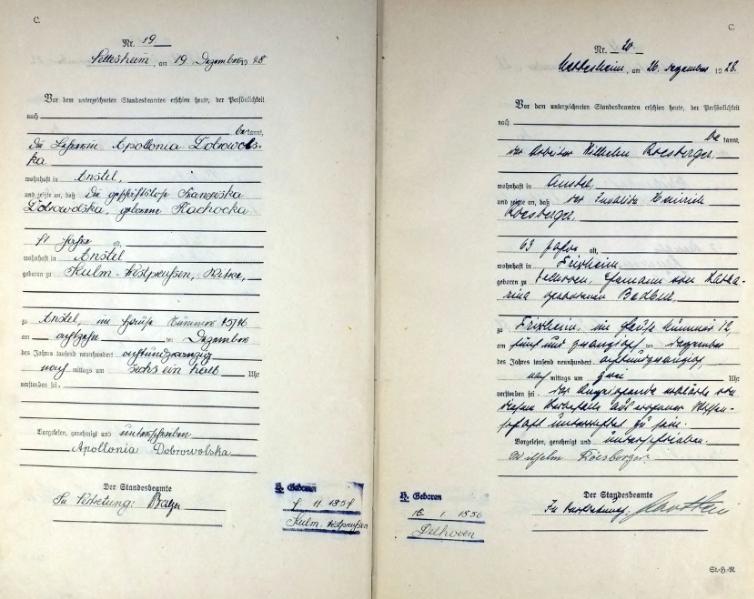 C.
Nr. 19
Nettesheim, am 19 Dezember 1928
Vor dem unterzeichneten Standesbeamten erschien heute, der Persönlichkeit
nach
bekannt,
die Apollonia Dobrowols-
ka
wohnhaft in Anstel,
und zeigte an, daß die geschäftslose Franziska
Dobrowolska, geborene Rachocka
71 Jahre alt,
wohnhaft in Anstel
geboren zu Kulm Westpreußen, Witwe,
zu Anstel, im Hause Nummer 75/76
am achtzehn ten Dezember
des Jahres tausend neunhundert achtundzwanzig
nach mittags um sechs ein halb Uhr
verstorben sei.
Vorgelesen, genehmigt und unterschrieben
Apollonia Dobrowolska
Der Standesbeamte
In Vertretung:
Geboren
11 1857
Kulm, Westpreußen
C.
Nr. 20
Nettesheim, am 26. Dezember 1928.
Vor dem unterzeichneten Standesbeamten erschien heute, der Persönlichkeit
nach
be kannt,
der Arbeiter Wilhelm Roesberger
wohnhaft in Anstel,
und zeigte an, daß der Invalide Heinrich
Roesberger,
63 Jahre alt,
wohnhaft in Frixheim
geboren zu Delhoven, Ehemann von Katha-
rina geborenen
zu Frixheim, im Hause Nummer 12,
am fünf und zwanzigsten Dezember
des Jahres tausend neunhundert achtundzwanzig,
nach mittags um zwei Uhr
verstorben sei. Der Anzeigende erklärte von
diesem Sterbefalle aus eigener Wissen-
schaft unterrichtet zu sein.
Vorgelesen, genehmigt und unterschrieben.
Wilhelm Roesberger
Der Standesbeamte
In Vertretung,
Geboren
Delhoven
St.-H.-R.